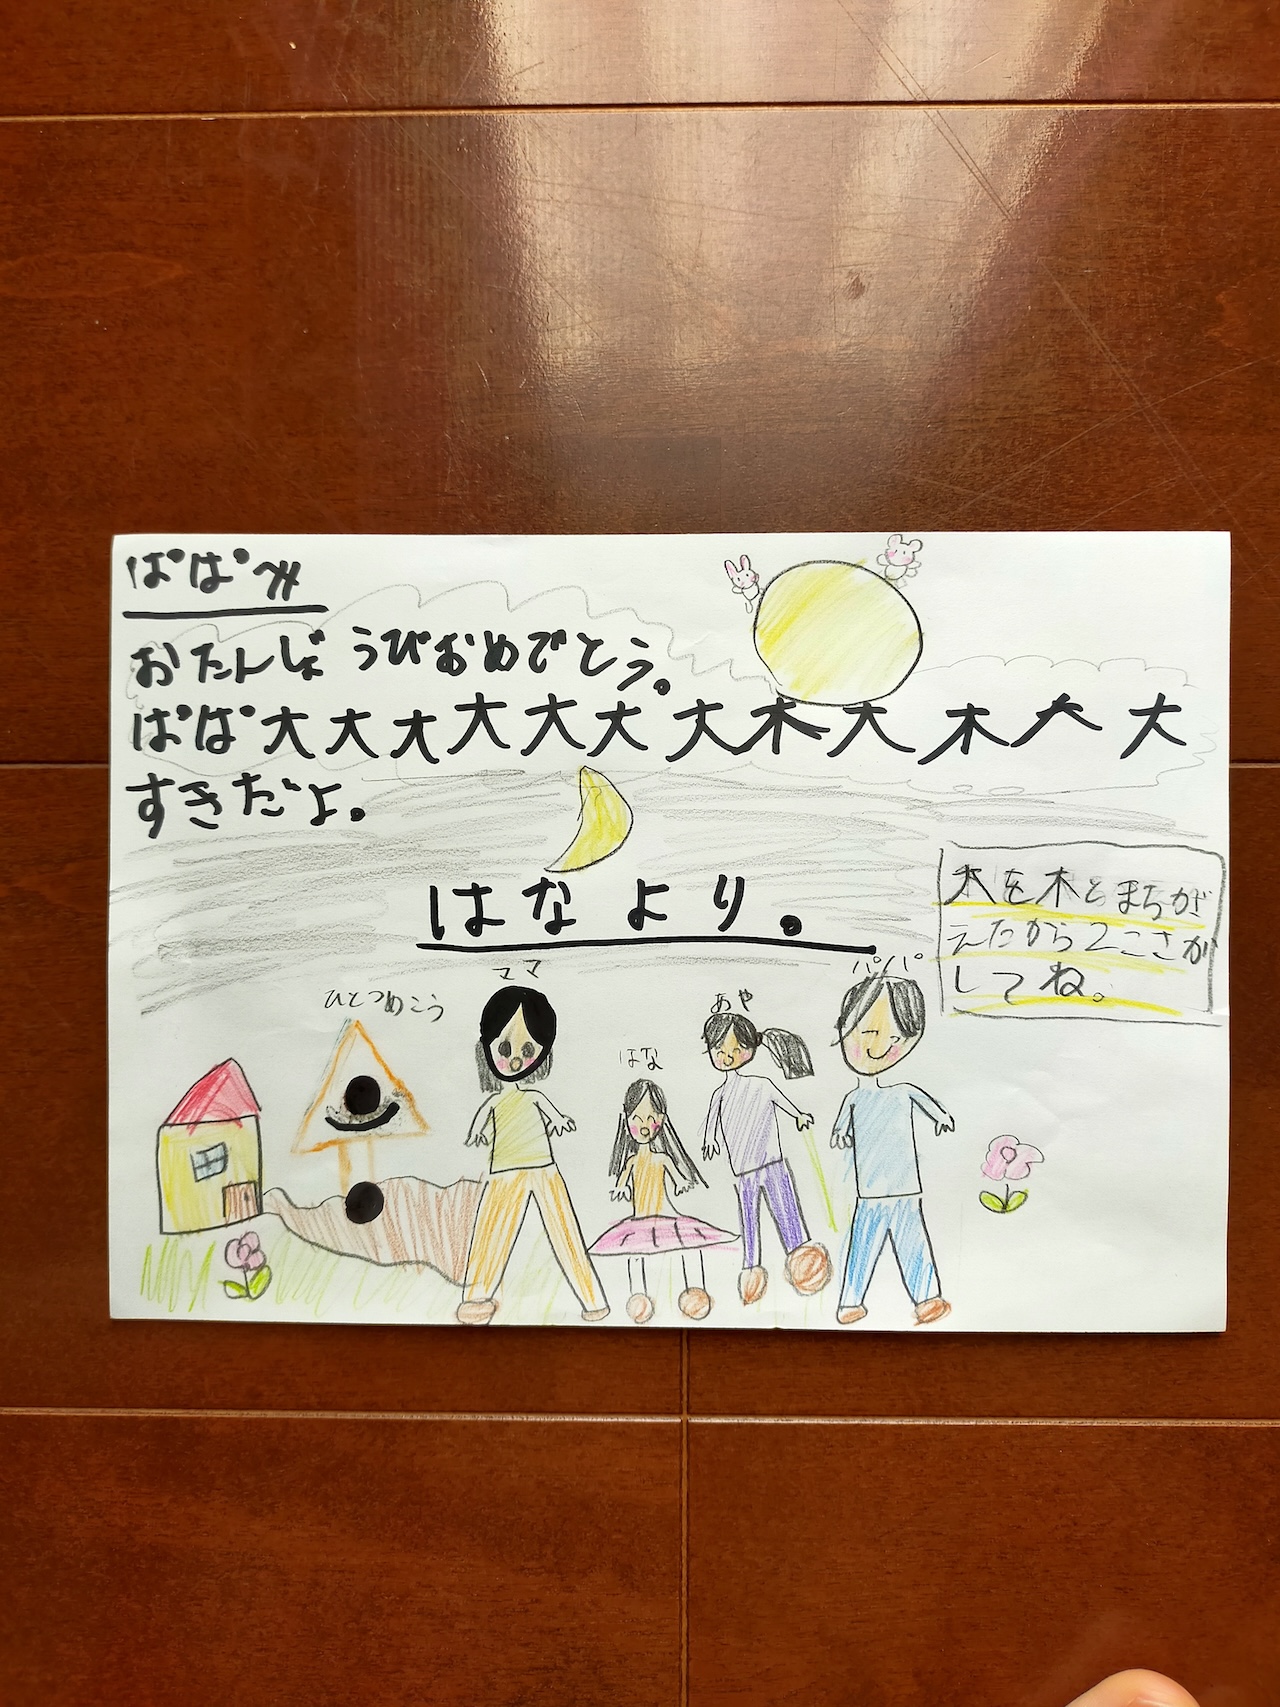 ぱぱへ
おたんじょうびおめでとう。
ぱぱ大大大大大大大木大木大大
すきだよ。
はなより。
大を木とまちが
えたから2こさが
してね。
ママ
パパ
ひとつめこう
あや
はな